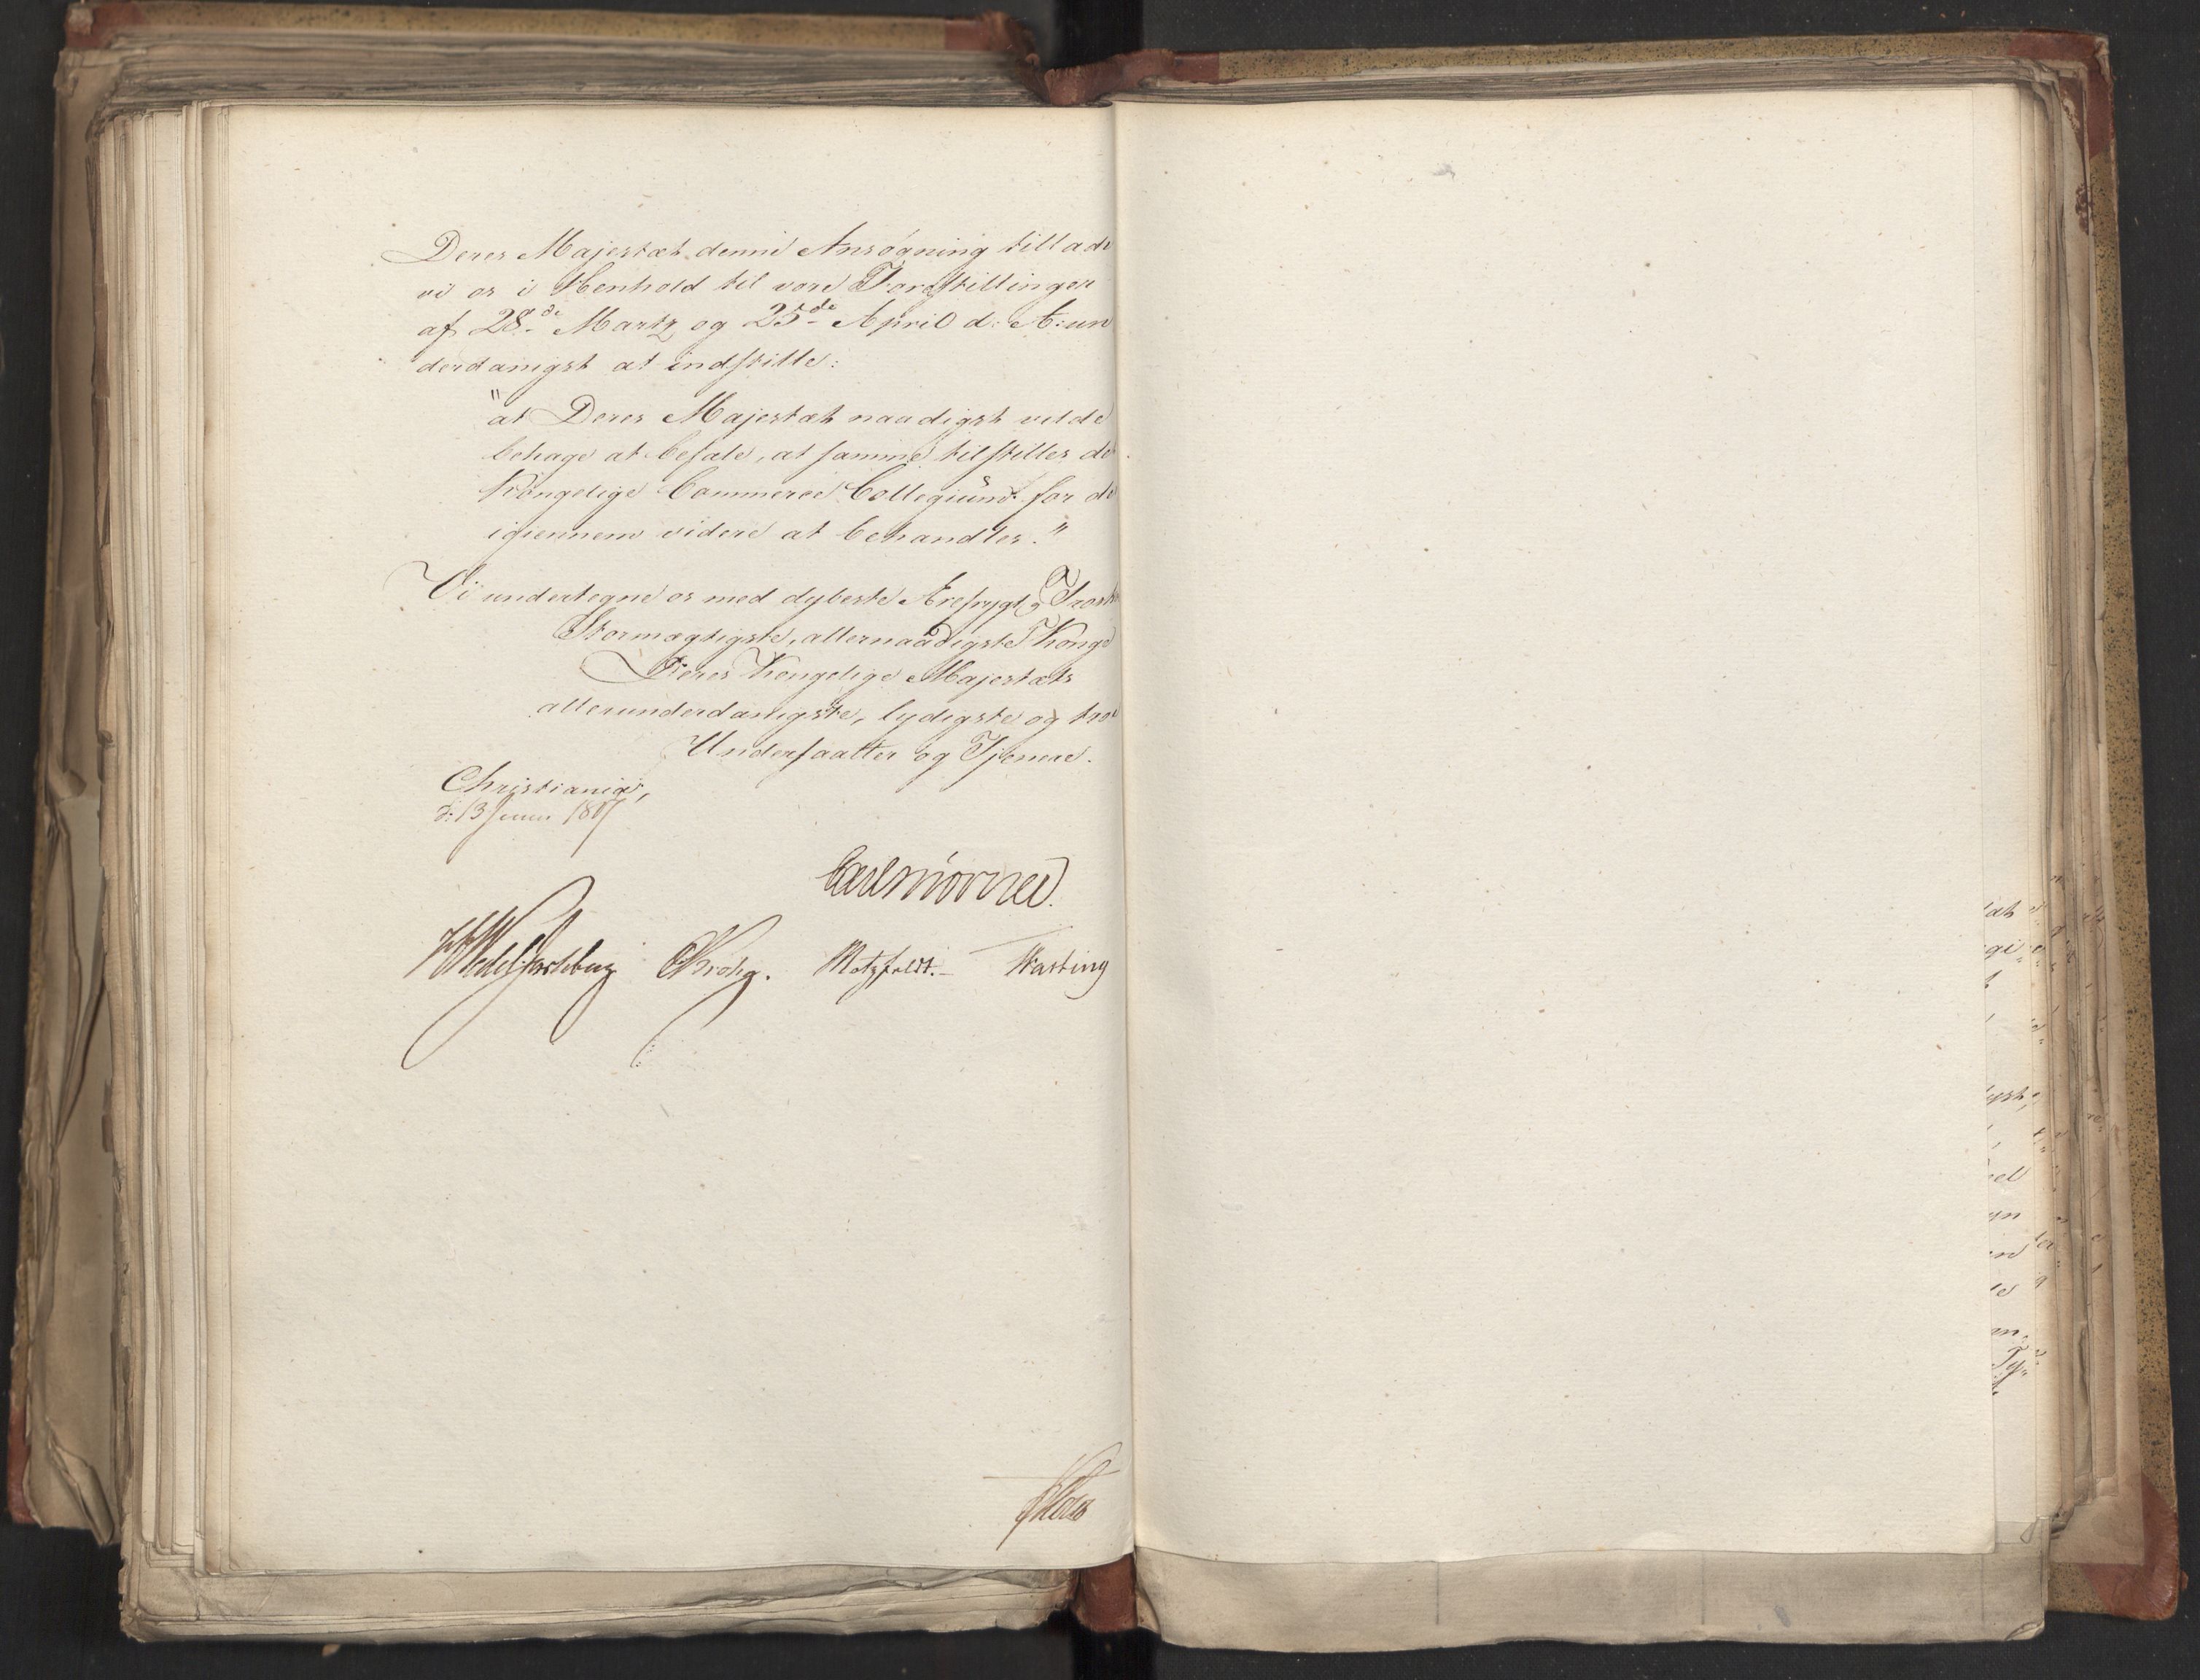 Deres Majestæt denne Ansøgning tillade
vi os i Henhold til vore Forestillinger
af 28de Martz og 25de April d: A: un
derdanigst at indstille:
"at Deres Majestæt naadigst vilde
behage at befale, at samme tilstilles de
Kongelige Commerce Collegium for de
igiennem videre at behandles."
Vi undertegne os med dybeste Ærefrygt og Trosk
Stormægtigste, allernaadigste Konge
Deres Kongelige Majestæts
allerunderdanigste, lydigste og troe
Undersaatter og Tjenere.
Christiania,
d: 13 Juni 1817
Carl Mörner.
Wedel Jarlsberg Krohg. Motzfeldt. Hasting